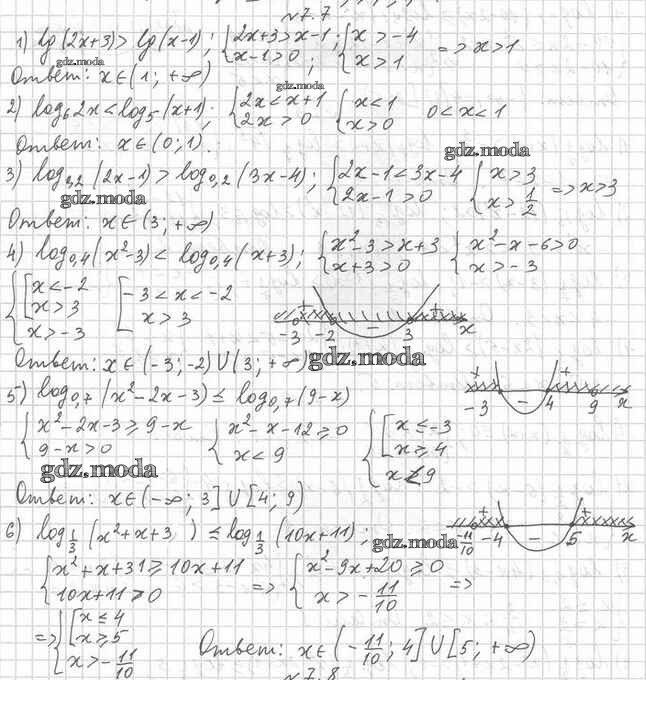 №7.7
1) lg(2x+3) > lg(x-1); { 2x+3 > x-1 ; x-1 > 0 ; { x > -4 ; x > 1 => x > 1
gdz.moda
Ответ: x ∈ (1; +∞)
gdz.moda
2) log₆ 2x < log₅ (x+1); { 2x < x+1 ; 2x > 0 { x < 1 ; x > 0 0 < x < 1
Ответ: x ∈ (0; 1).
gdz.moda
3) log₃,₂ (2x-1) > log₀,₂ (3x-4); { 2x-1 < 3x-4 ; 2x-1 > 0 { x > 3 ; x > 1/2 => x > 3
gdz.moda
Ответ: x ∈ (3; +∞)
4) log₀,₄ (x²-3) < log₀,₄ (x+3); { x²-3 > x+3 ; x+3 > 0 { x²-x-6 > 0 ; x > -3
{ [ x < -2 ; x > 3 ; x > -3 [ -3 < x < -2 ; x > 3
+ - + -3 -2 3 x
Ответ: x ∈ (-3; -2) U (3; +∞)
gdz.moda
5) log₀,₇ (x²-2x-3) ≤ log₀,₇ (9-x)
+ - + -3 4 9 x
{ x²-2x-3 ≥ 9-x ; 9-x > 0 { x²-x-12 ≥ 0 ; x < 9 { [ x ≤ -3 ; x ≥ 4 ; x < 9
gdz.moda
Ответ: x ∈ (-∞; 3] U [4; 9)
6) log 1/3 (x²+x+3 ) ≤ log 1/3 (10x+11);
gdz.moda
+ - + -11/10 -4 5 x
{ x²+x+31 ≥ 10x+11 ; 10x+11 > 0 => { x²-9x+20 ≥ 0 ; x > -11/10 =>
=> { [ x ≤ 4 ; x ≥ 5 ; x > -11/10
Ответ: x ∈ (-11/10; 4] U [5; +∞)
№7.8